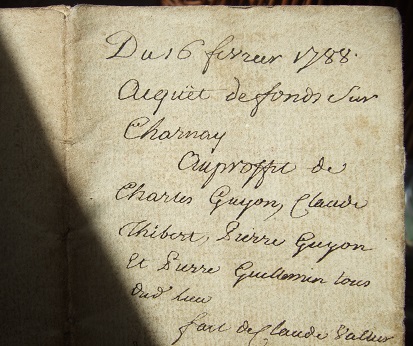 Du 16 fevrier 1788.
Acquêt de fonds sur
Charnay
Auproffit de
Charles Guyon, Claude
Thibert, Pierre Guyon
Et Pierre Guillemin tous
dud. lieu
fait de Claude